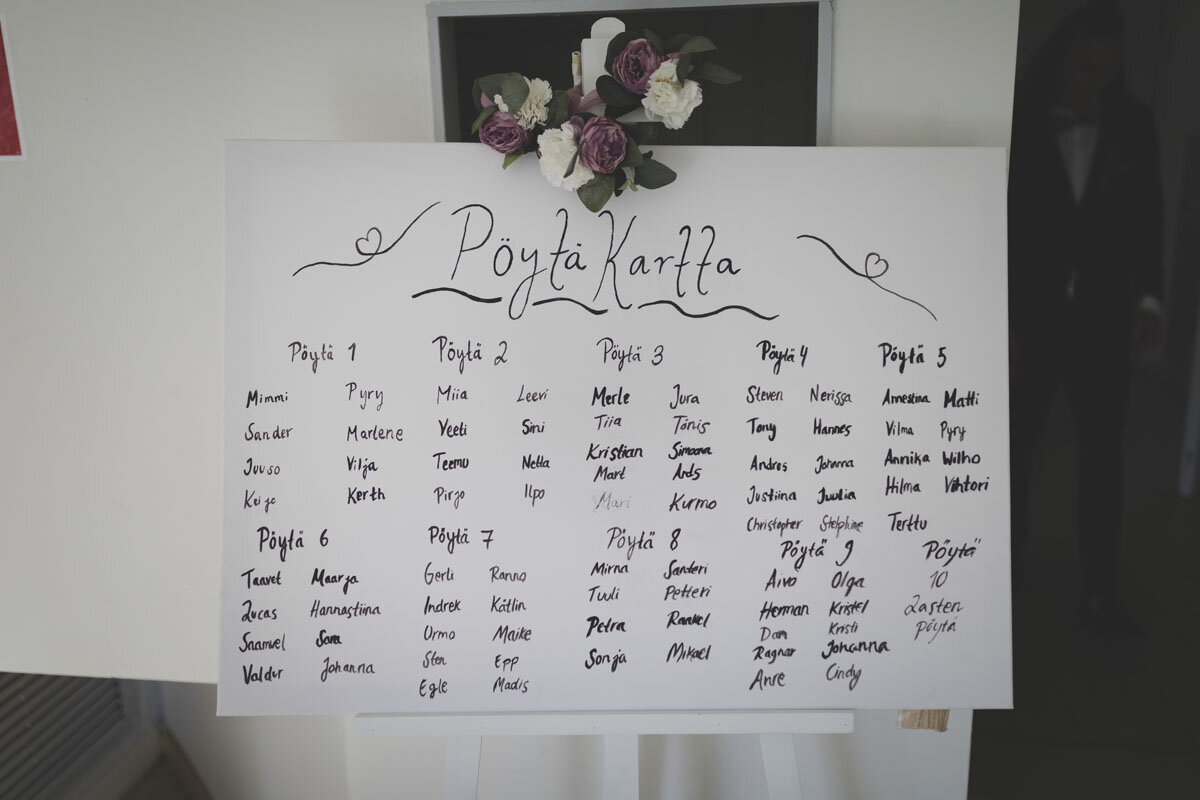 Pöytä Kartta
Pöytä 1
Mimmi Pyry
Sander Marlene
Juuso Vilja
Keijo Kerth
Pöytä 2
Miia Leevi
Veeti Sini
Teemu Netta
Pirjo Ilpo
Pöytä 3
Merle Jura
Tiia Tõnis
Kristian Simoona
Mart Ards
Mari Kurmo
Pöytä 4
Steven Nerissa
Tony Hannes
Andres Johanna
Justiina Juulia
Christopher Stelphine
Pöytä 5
Annestiina Matti
Vilma Pyry
Annika Wilho
Hilma Vihtori
Terttu
Pöytä 6
Taavet Maarja
Lucas Hannastiina
Saamuel Sara
Valdur Johanna
Pöytä 7
Gerli Ranno
Indrek Kätlin
Urmo Maike
Sten Epp
Egle Madis
Pöytä 8
Mirna Santeri
Tuuli Petteri
Petra Raakel
Sonja Mikael
Pöytä 9
Aivo Olga
Herman Kristel
Dan Kristi
Ragnar Johanna
Anre Cindy
Pöytä
10
Lasten
pöytä